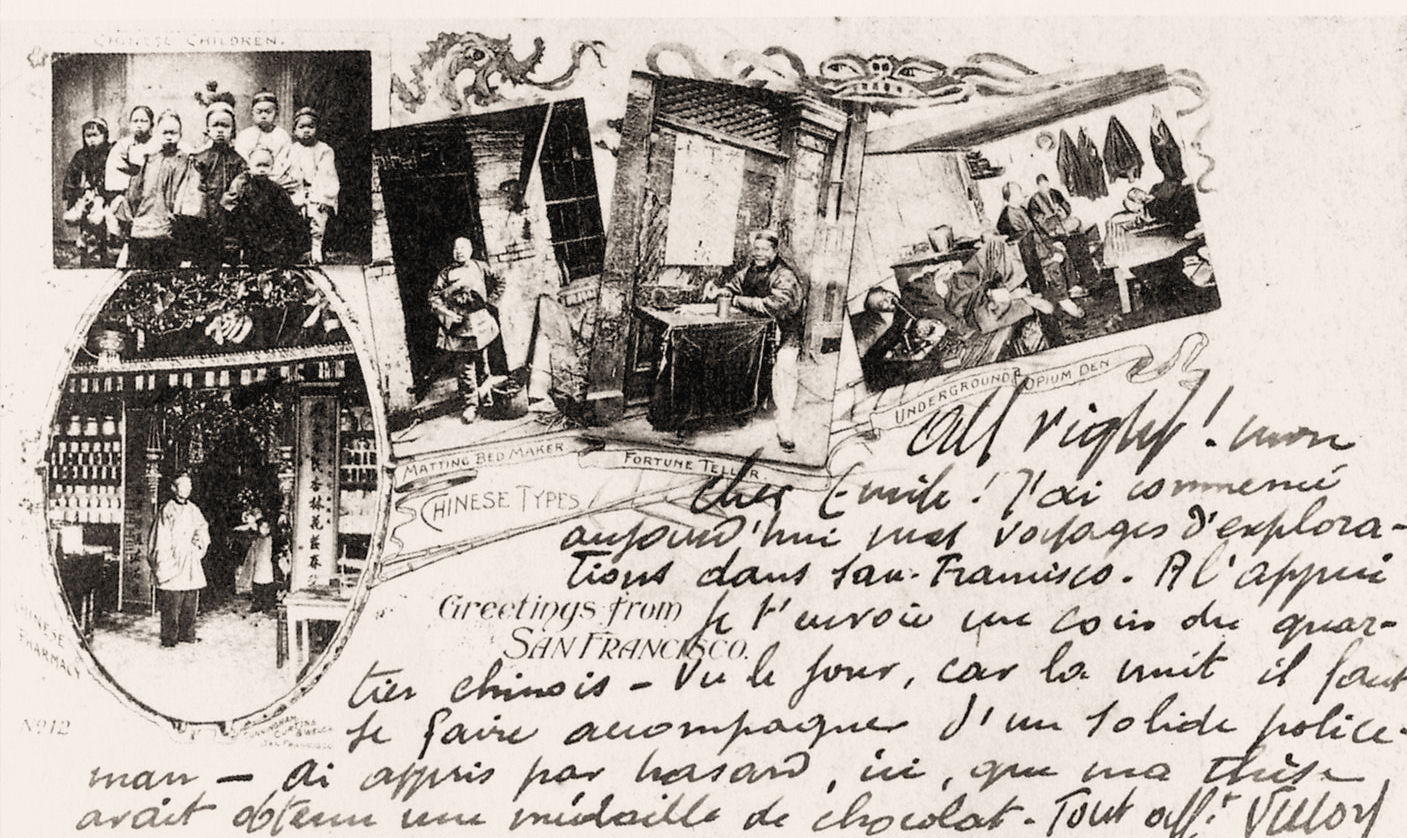 CHINESE CHILDREN.
MATTING BED MAKER
FORTUNE TELLER
UNDERGROUND OPIUM DEN
CHINESE TYPES
CHINESE PHARMACY
Greetings from
SAN FRANCISCO.
No 12
SAN FRANCISCO
All right! mon
cher Emile! J'ai commencé
aujourd'hui mes voyages d'explora-
tions dans San-Francisco. A l'appui
je t'envoie un coin du quar-
tier chinois – Vu le jour, car la nuit il faut
se faire accompagner d'un solide police-
man – Ai appris par hasard, ici, que ma thèse
avait obtenu une médaille de chocolat. Tout aff.t